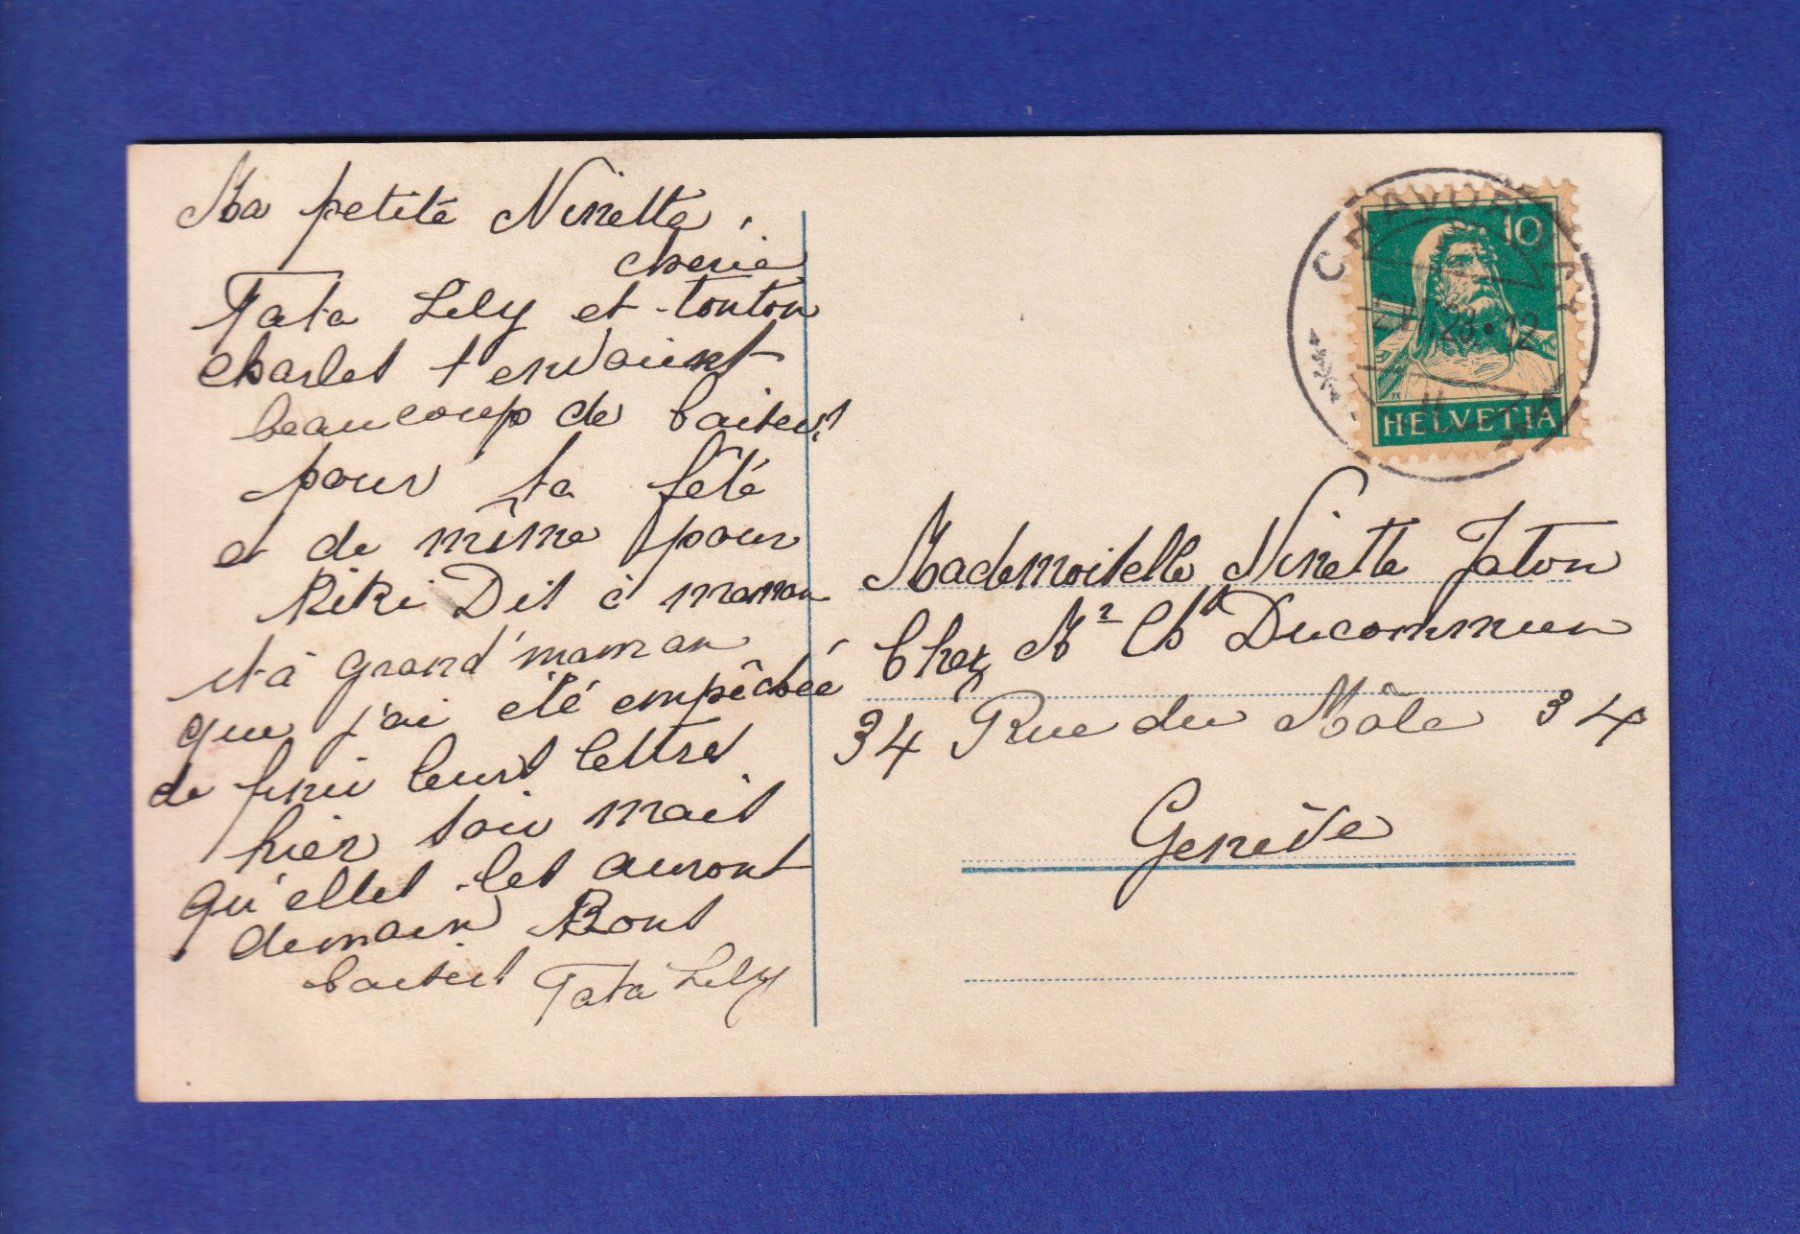 Ma petite Ninette
chérie
Tata Lily et tonton
Charles t'envoient
beaucoup de baisers
pour ta fête
et de même pour
Kiki Dis à maman
et à grand'maman
que j'ai été empêchée
de finir leurs lettres
hier soir mais
qu'elles les auront
demain Bons
baisers Tata Lily
10
HELVETIA
Mademoiselle Ninette Jaton
Chez Mr Ch Ducommun
34 Rue du Môle 34
Genève